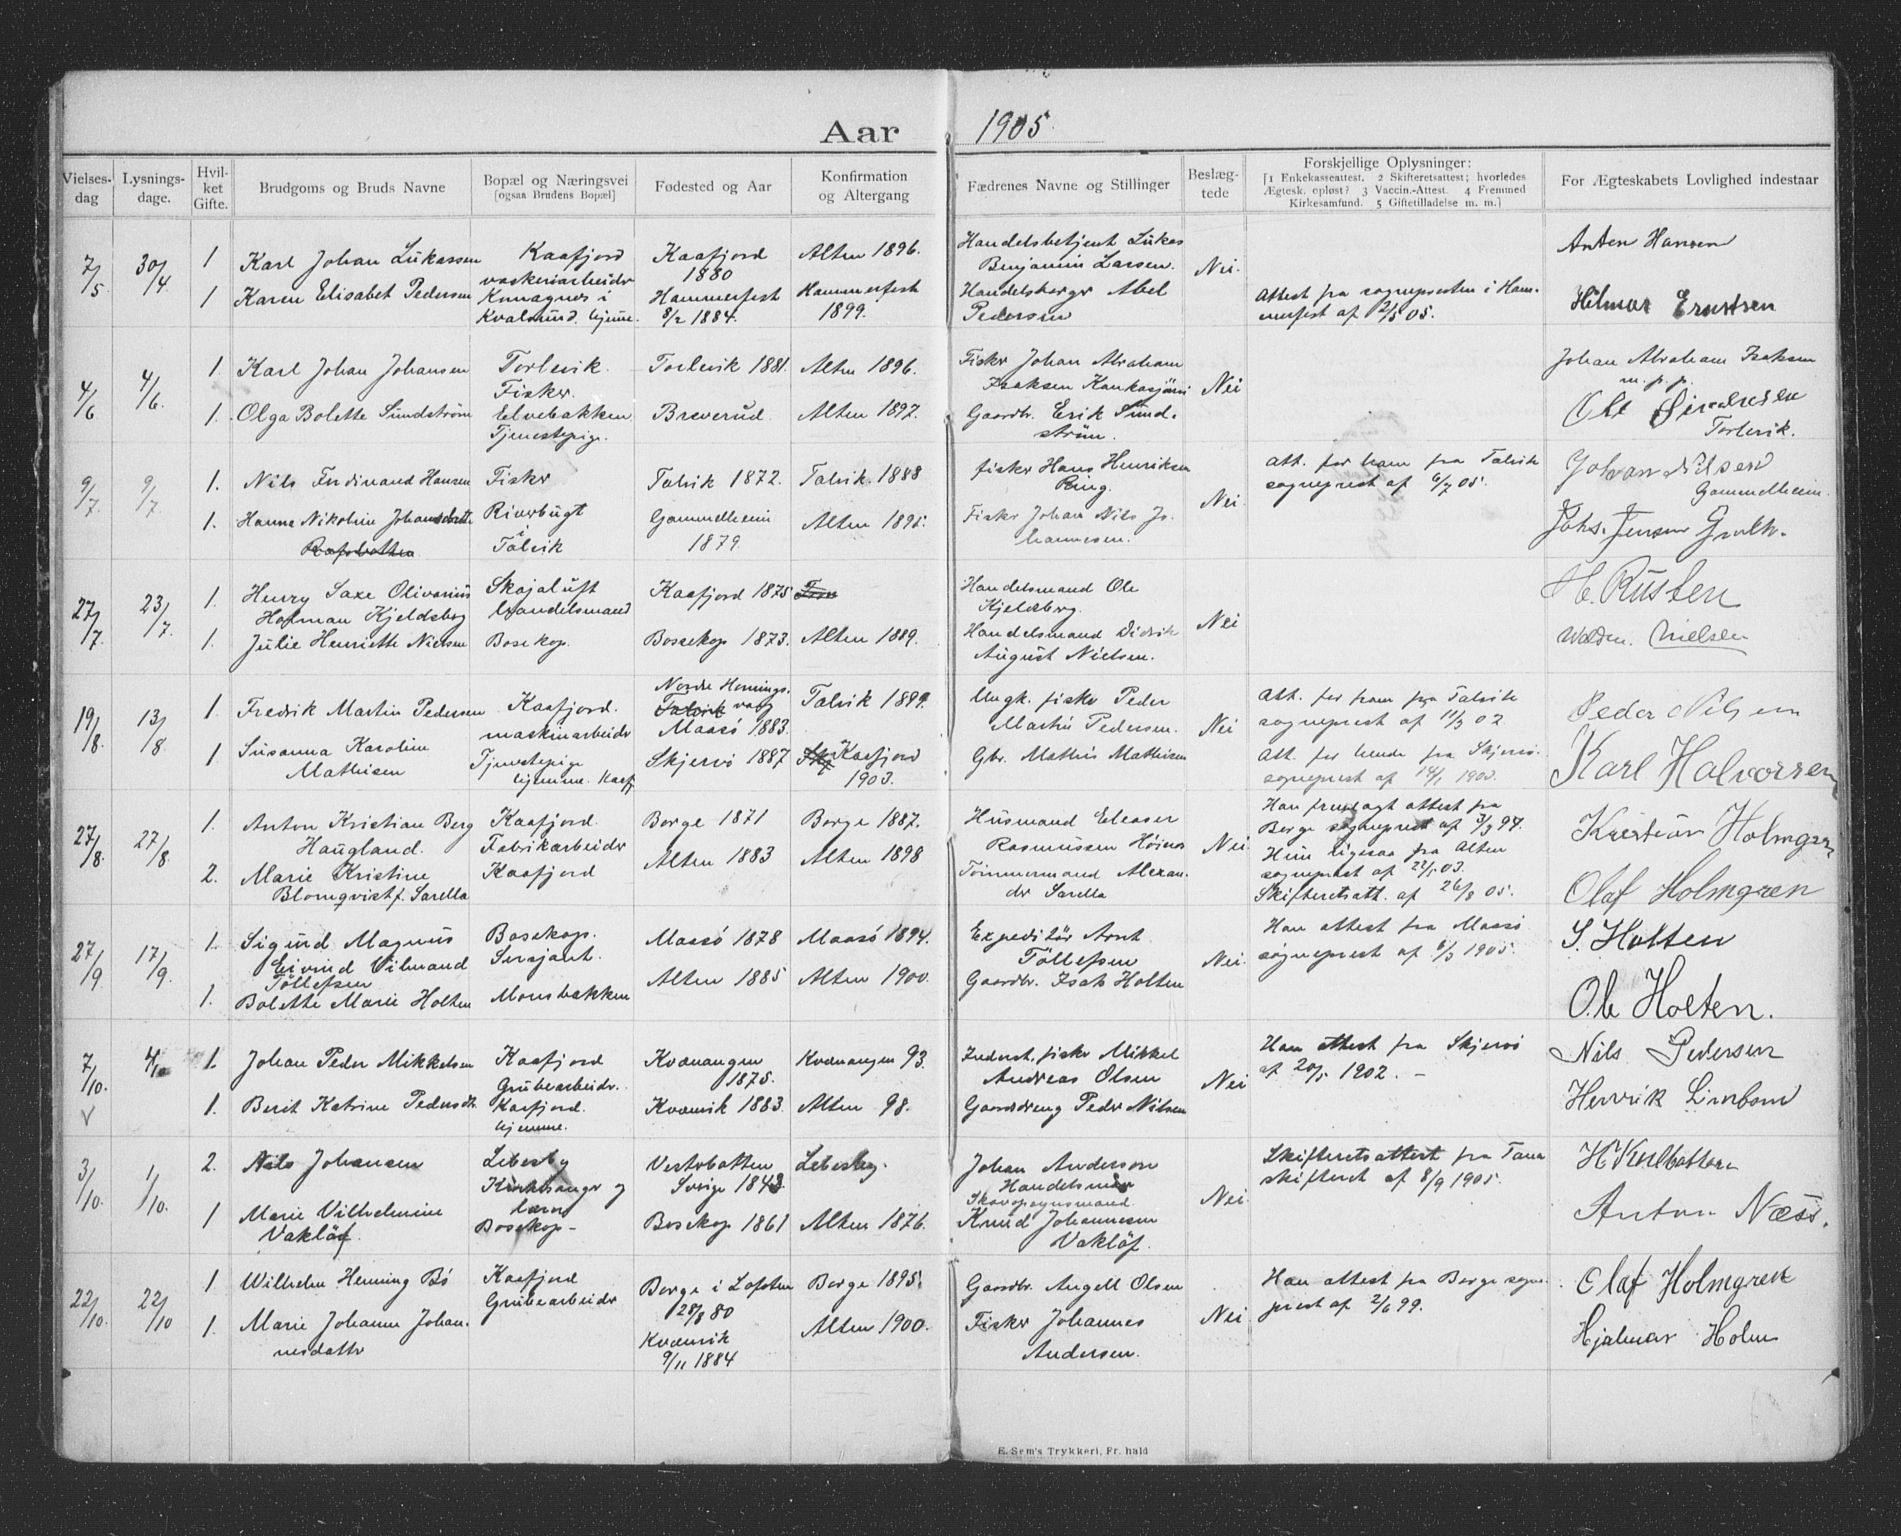 Aar 1905.
Vielses-dag
Lysnings-dage.
Hvil-ket Gifte.
Brudgoms og Bruds Navne
Bopæl og Næringsvei
[ogsaa Brudens Bopæl]
Fødested og Aar
Konfirmation og Altergang
Fædrenes Navne og Stillinger
Beslæg-tede
Forskjellige Oplysninger:
[1 Enkekasseattest. 2 Skifteretsattest; hvorledes
Ægtesk. opløst? 3 Vaccin.-Attest. 4 Fremmed
Kirkesamfund. 5 Giftetilladelse m. m.]
For Ægteskabets Lovlighed indestaar
7/5 30/4
1 Karl Johan Lukassen Kaafjord Kaafjord 1880 Alten 1896.
Handelsbetjent Lukas Benjamin Larsen. Nei.
Anton Hansen
1 Karen Elisabet Pedersen Kvalsund. hjemme. Hammerfest 8/2 1884. Hammerfest 1899.
Handelsborger Abel Pedersen
Attest fra sognepresten i Ham-
merfest af 2/5 05.
Hilmar Erntsen
4/6 4/6.
1. Karl Johan Johansen Torlevik. Fisker. Torlevik 1881. Alten 1896.
Fisker Johan Abraham Isaksen Nei
Johan Abraham Isaksen
m. p. p.
1. Olga Bolette Sundström Elvebakken Tjenestepige. Breverud. Alten 1897.
Gaardbr. Erik Sund-
ström.
Ole
Torlevik.
9/7 9/7.
1. Nils Ferdinand Hansen Fisker Talvik 1872. Talvik 1888
fisker Hans Henriksen Ring. Nei.
Att. for ham fra Talvik
sogneprest af 6/7 05.
Johan Nilsen
Gammelheim.
1. Hanna Nikoline Johansdatter Riverbugt i Talvik Gammelheim 1879.
Fisker Johan Nils Jo-
hannesen.
Johs. Jensen
27/7 23/7.
1. Henry Saxe Olivarius
Hofman Kjeldsberg Skajaluft handelsmand Kaafjord 1875
Handelsmand Ole
Kjeldsberg. Nei
H. Rusten
1. Julie Henriette Nielsen Bosekop. Bossekop 1873. Alten 1889.
Handelsmand Didrik
August Nielsen.
Nielsen
19/8. 13/8.
1. Fredrik Martin Pedersen Kaafjord. maskinarbeider Nordre Honnings-
vaag Maasö 1883. Talvik 1899.
Ungk. fisker Peder
Martin Pedersen. Nei
Att. for ham fra Talvik
sogneprest af 11/3 02.
Peder Nilsen
1 Susanna Karoline
Mathisen Tjenestepige hjemme. Kaafj. Skjervö 1887 Kaafjord 1903.
Gbr. Mathis Mathisen
Att. for hende fra Skjervö
sogneprest af
Karl Halvorsen
27/8. 27/8.
1. Anton Kristian Berg
Haugland. Kaafjord. Fabrikarbeider Borge 1871 Borge 1887.
Husmand Eleaser
Rasmussen Nei
Han fremlagt attest fra
Borge sogneprest af 3/3 94.
Kristian Holmgren
2. Marie Kristine
Blomqvist f. Sarella Kaafjord Alten 1883 Alten 1898
Tømmermand Alexan-
der Sarella
Hun ligesaa fra Alten
sogneprest af 22/1 03.
Skifteretsatt. af 26/8 05.
Olaf Holmgren
27/9 17/9.
1. Sigurd Magnus
Eivind Vilmand
Töllefsen Bosekop. Sersjant. Maasö 1878 Maasö 1894.
Expeditör Arnt
Töllefsen Nei.
Han attest fra Maasö
sogneprest af 6/3 1905.
S. Holten
1. Bolette Marie Holten Monsbakken Alten 1885 Alten 1900.
Gaardbr. Isak Holten
Ole Holten.
7/10. 4/10
1. Johan Peder Mikkelsen Kaafjord Grubearbeider. Kvænangen 1875. Kvænangen 93.
Inderst, fisker Mikkel
Andreas Olsen Nei
Han attest fra Skjervö
af 20/5 1902. —
Nils Pedersen
V
1. Berit Katrine Pedersdtr. Kaafjord. hjemme. Kvænvik 1883. Alten 98.
Gaarddreng Peder Nilsen
Henrik
3/10. 1/10.
2. Nils Johansen Lebesby Kirkesanger og lærer Vesterbotten Sverige 1843 Lebesby.
Johan Anderson
Handelsmand Nei.
Skifteretsattest fra Tana
skifteret af 8/9 1905.
1 Marie Vilhelmine
Vaklöf. Bosekop – Bosekop 1861 Alten 1876.
Skovopsynsmand
Knud Johannesen
Vaklöf.
Anton Næss.
22/10. 22/10
1 Wilhelm Henning Bö Kaafjord Grubearbeider Borge i Lofoten
28/8 80 Borge 1895.
Gaardbr. Angell Olsen Nei
Han attest fra Borge sogne-
prest af 2/6 99.
Olaf Holmgren
1. Marie Johanne Johan-
nesdatter Kvænvik 9/11 1884 Alten 1900.
Fisker Johannes
Andersen.
Hjalmar Holm
E. Sem's Trykkeri, Fr. hald